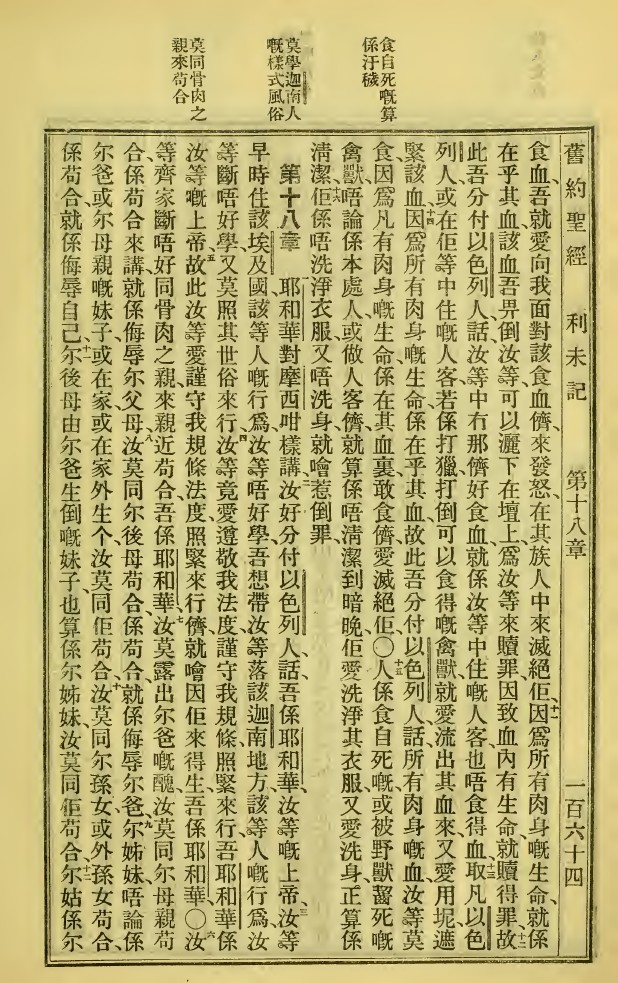 食自死嘅算
係汙穢
莫學迦南人
嘅樣式風俗
莫同骨肉之
親來苟合
舊約聖經 利未記 第十八章 一百六十四
食血、吾就愛向我面對該食血儕、來發怒、在其族人中來滅絕佢、十一因爲所有肉身嘅生命、就係
在乎其血、該血吾畀倒汝等、可以灑下在壇上、爲汝等來贖罪、因致血內有生命、就贖得罪、十二故
此吾分付以色列人話、汝等中冇那儕好食血、就係汝等中住嘅人客、也唔食得血、十三取凡以色
列人、或在佢等中住嘅人客、若係打獵打倒可以食得嘅禽獸、就愛流出其血來、又愛用坭遮
緊該血、十四因爲所有肉身嘅生命、係在乎其血、故此吾分付以色列人話、所有肉身嘅血、汝等莫
食、因爲凡有肉身嘅生命、係在其血裏、敢食儕、愛滅絕佢、〇十五人係食自死嘅、或被野獸齧死嘅
禽獸、唔論係本處人、或做人客儕、就算係唔清潔到暗晚、佢愛洗淨其衣服、又愛洗身、正算係
淸潔、十六佢係唔洗淨衣服、又唔洗身、就噲惹倒罪、
第十八章 耶和華對摩西咁樣講、二汝好分付以色列人、話、吾係耶和華、汝等嘅上帝、三汝等
早時住該埃及國、該等人嘅行爲、汝等唔好學、吾想帶汝等落該迦南地方、該等人嘅行爲、汝
等斷唔好學、又莫照其世俗來行、四汝等竟愛遵敬我法度、謹守我規條、照緊來行、吾耶和華係
汝等嘅上帝、五故此汝等愛謹守我規條法度、照緊來行儕、就噲因佢來得生、吾係耶和華、〇六汝
等齊家斷唔好同骨肉之親、來親近苟合、吾係耶和華、七汝莫露出尔爸嘅醜、汝莫同尔母親苟
合、係苟合來講、就係侮辱尔父母、八汝莫同尔後母苟合、係苟合、就係侮辱尔爸、九尔姊妹、唔論係
尔爸或尔母親嘅妹子、或在家或在家外生个、汝莫同佢苟合、十汝莫同尔孫女或外孫女苟合、
係苟合、就係侮辱自己、十一尔後母由尔爸生倒嘅妹子、也算係尔姊妹、汝莫同佢苟合、十二尔姑係尔